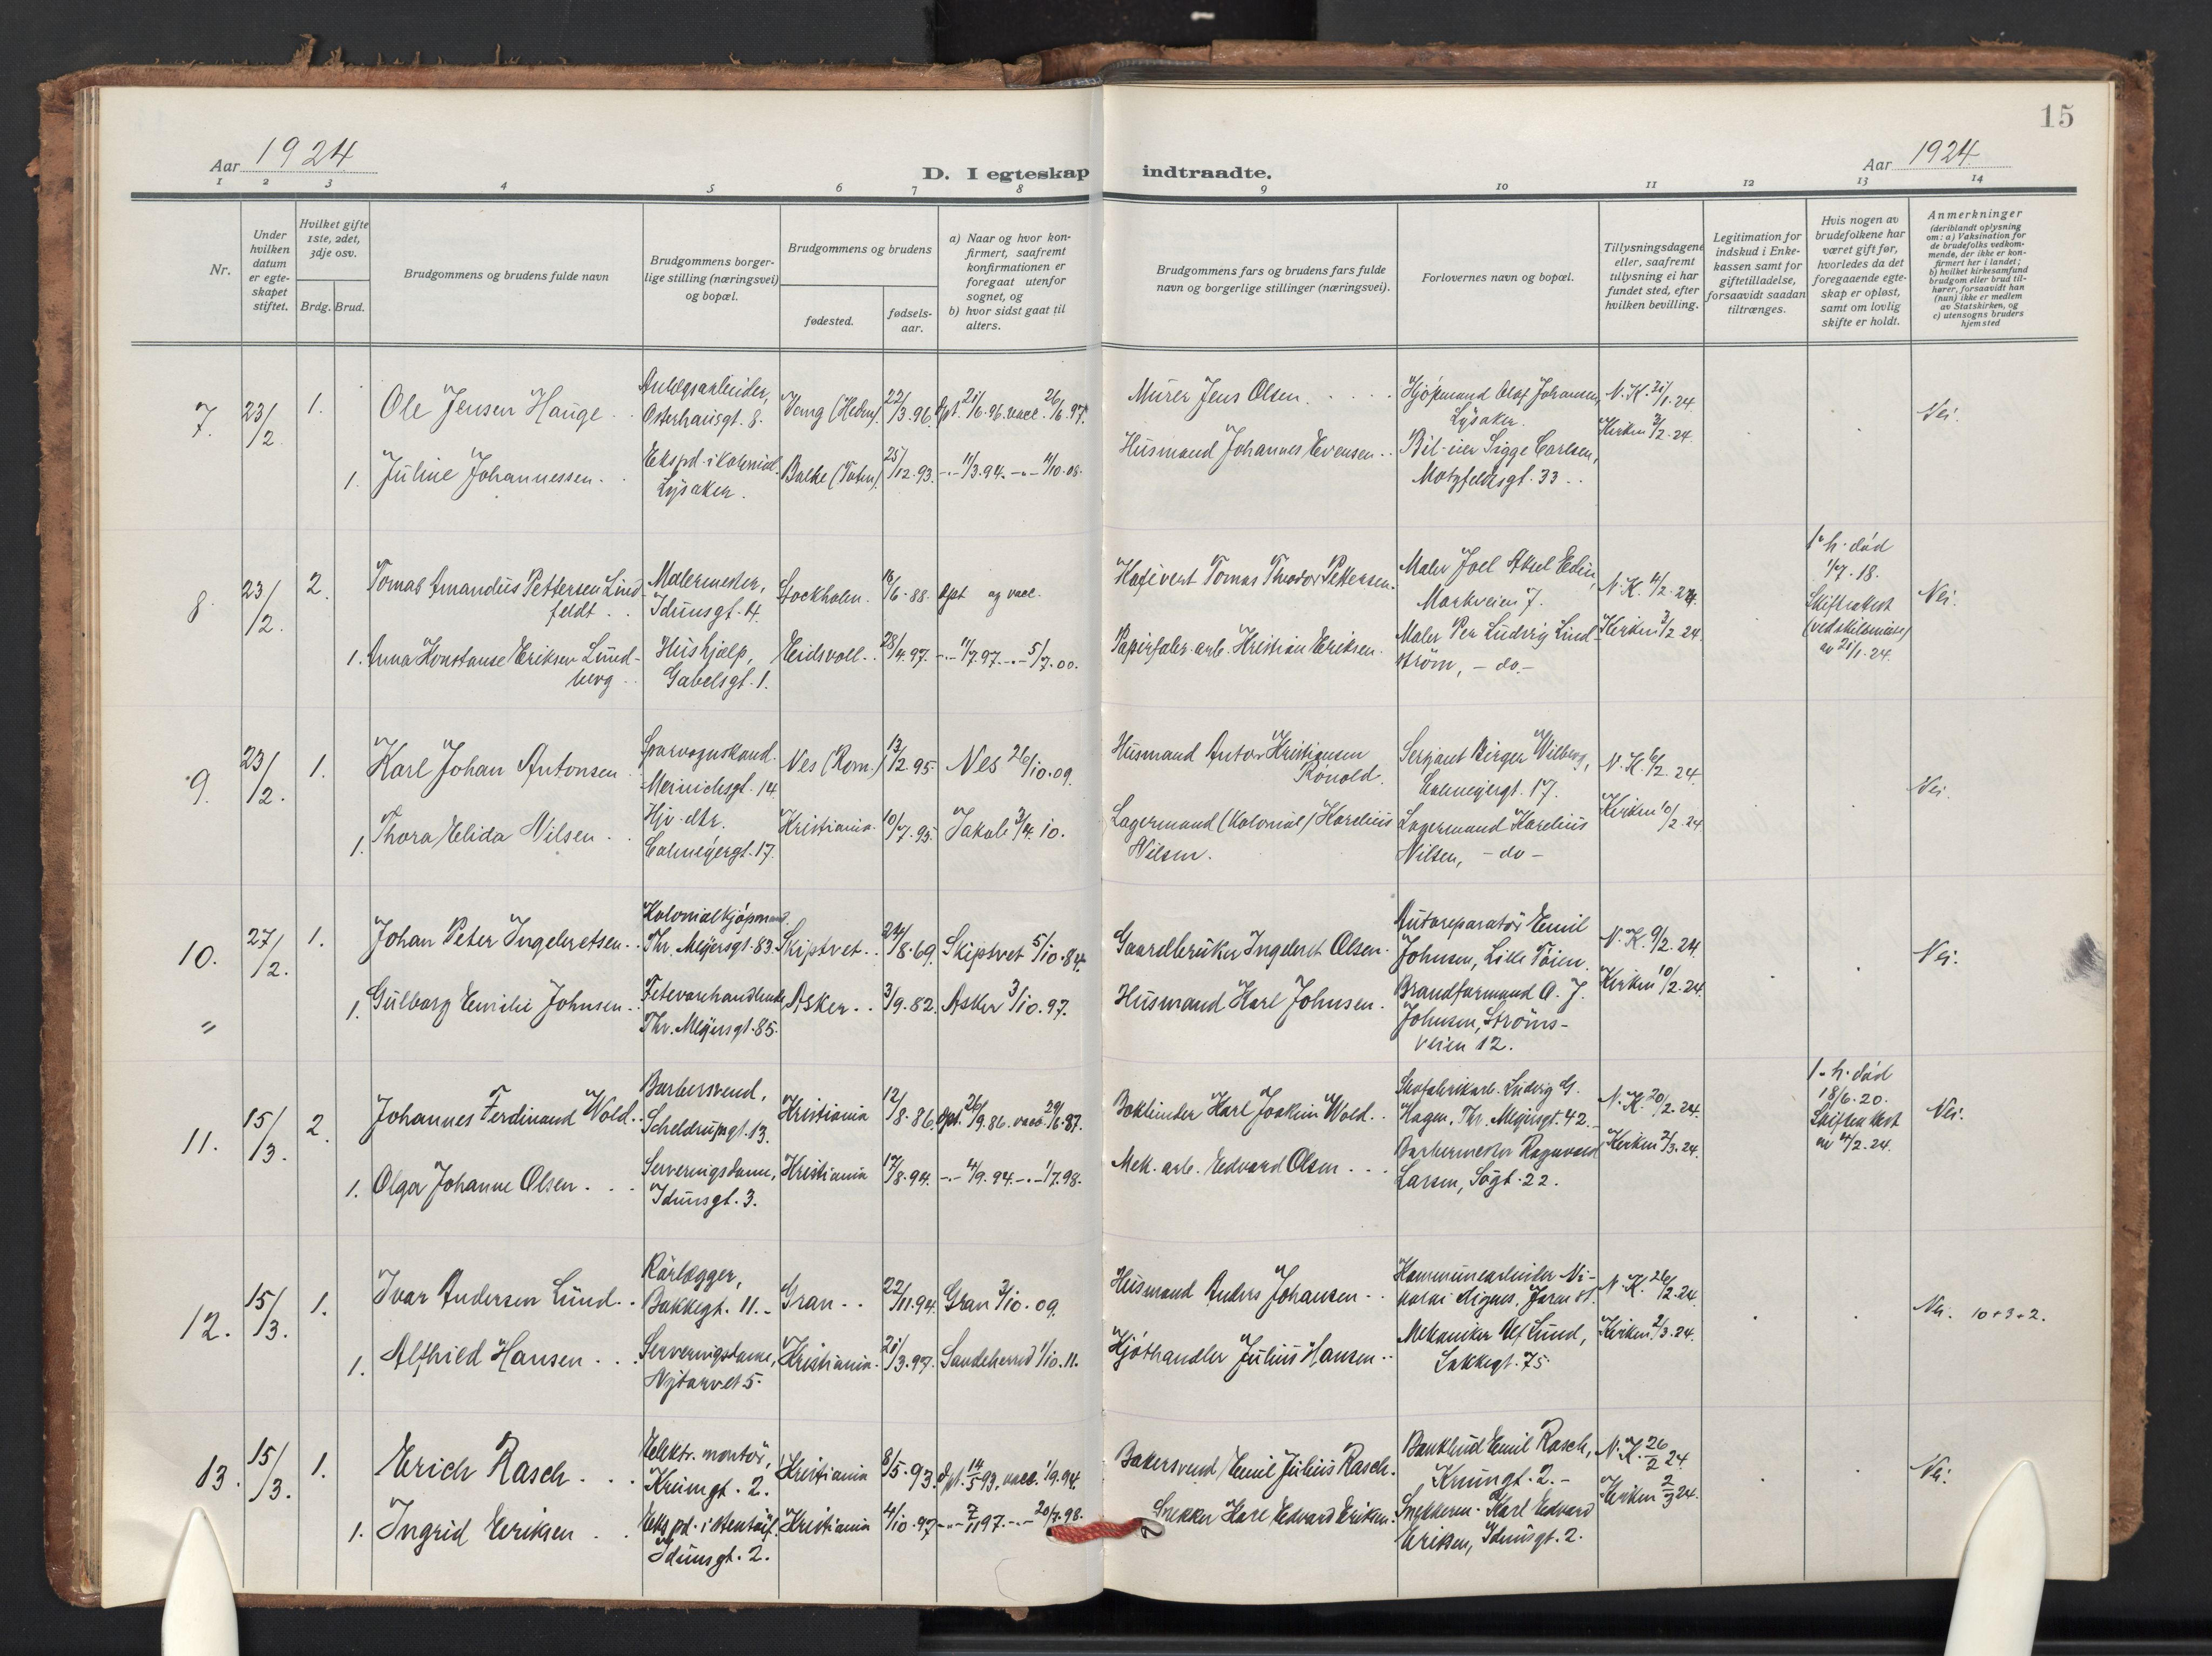 15
Aar 1924
D. I egteskap indtraadte.
Aar 1924
1 2 3 4 5 6 7 8 9 10 11 12 13 14
Nr.
Under hvilken datum er egte-skapet stiftet.
Hvilket gifte 1ste, 2det, 3dje osv.
Brdg. Brud.
Brudgommens og brudens fulde navn
Brudgommens borger-lige stilling (næringsvei) og bopæl.
Brudgommens og brudens
fødested.
fødsels-aar.
a) Naar og hvor kon-firmert, saafremt konfirmationen er foregaat utenfor sognet, og
b) hvor sidst gaat til alters.
Brudgommens fars og brudens fars fulde navn og borgerlige stillinger (næringsvei).
Forlovernes navn og bopæl.
Tillysningsdagene eller, saafremt tillysning ei har fundet sted, efter hvilken bevilling.
Legitimation for indskud i Enke-kassen samt for giftetilladelse, forsaavidt saadan tiltrænges.
Hvis nogen av brudefolkene har været gift før, hvorledes da det foregaaende egte-skap er opløst, samt om lovlig skifte er holdt.
Anmerkninger (deriblandt oplysning om: a) Vaksination for de brudefolks vedkom-mende, der ikke er kon-firmert her i landet; b) hvilket kirkesamfund brudgom eller brud til-hører, forsaavidt han (hun) ikke er medlem av Statskirken, og c) utensogns bruders hjemsted
7. 23/2. 1. Ole Jensen Hauge . . Anlegsarbeider, Osterhausgt. 8. Vang (Hedm) 22/3.96. Dpt. 21/6.96. vacc. 26/6.97. Murer Jens Olsen . . . . Kjøpmand Olaf Johansen, Lysaker. N.K. 31/1.24. Nei.
1. Juline Johannessen. . Ekspd. i kolonial. Lysaker. Balke (Toten). 25/12.93. -.- 11/3.94. -.- 11/10.08. Husmand Johannes Evensen . . Bil-eier Sigge Carlsen, Motzfeldtsgt. 33 . . Kirken 3/2.24.
8. 23/2. 2. Tomas Amandus Pettersen Lind-feldt . . Malermester, Idunsgt. 4. Stockholm. 16/6.88. Dpt og vacc. Tomas Theodor Pettersen. Maler Joel Aksel Edin, Markveien 7. N.K. 4/2.24. 1. h. død 1/7.18. Skifteattest av 21/1.24. Nei.
1. Anna Konstanse Eriksen Lund-berg . . Hushjælp, Gabelsgt. 1. Eidsvoll . . 28/4.97. -.- 11/7.97. -.- 5/7.00. Papirfabr. arb. Kristian Eriksen. Maler Per Ludvig Lind-strøm, - do - Kirken 3/2.24.
9. 23/2. 1. Karl Johan Antonsen Sporvognskond. Meinichsgt. 14 Nes (Rom.) 13/2.95. Nes 26/10.09. Husmand Anton Kristiansen Rönold. Serjant Birger Wilberg, Calmeyergt. 17. N.K. 6/2.24. Nei.
1. Thora Elida Nilsen . . Hjv. dtr. Calmeyergt. 17. Kristiania. 10/7.95. Jakob 3/4.10. Lagermand (Kolonial) Karelius Nilsen. Lagermand Karelius Nilsen, - do - Kirken 10/2.24
10. 27/2. 1. Johan Peter Ingebretsen . . Kolonialkjøpmand. Thr. Meyersgt. 83. Skiptvet . . 24/8.69. Skiptvet 5/10.84. Gaardbruker Ingebret Olsen. Autoreparatör Emil Johnsen, Lille Töien. N.K. 9/2.24. Nei.
" 1. Gulborg Emilie Johnsen . . Fetevarehandlende Thr. Meyersgt. 85. Asker . . 3/9.82. Asker 3/10.97. Husmand Karl Johnsen. Brandformand O. J. Johnsen, Ströms-veien 12. Kirken 10/2.24.
11. 15/3. 2. Johannes Ferdinand Wold . . Barbersvend, Scheldrupsgt. 13. Kristiania 12/8.86. Dpt. 26/9.86. vacc. 29/6.87. Bokbinder Karl Joakim Wold . . Skofabrikarb. Ludvig G. Hagen, Thr. Meyersgt. 42. N.K. 20/2.24. 1. h. død 18/6.20. Skifteattest av 4/2.24. Nei.
1. Olga Johanne Olsen . . . Serveringsdame, Idunsgt. 3. Kristiania 17/8.94. -.- 4/9.94. -.- 1/7.98. Mek. arb. Edvard Olsen . . . Barbermester Ragnvald Larsen, Søgt. 22. Kirken 2/3.24.
12. 15/3. 1. Ivar Andersen Lund . . Rørlægger, Bakkegt. 11. Gran . . 22/11.94. Gran 3/10.09. Husmand Anders Johansen . . Kommunearbeider Ni-kolai Aignes, N.K. 26/2.24. Nei. 10+3+2.
1. Alfhild Hansen . . . Serveringsdame, Nytorvet 5. Kristiania. 21/3.97. Sandeherred 1/10.11. Kjøthandler Julius Hansen . . Mekaniker Alf Lund, Lakkegt. 75. Kirken 2/3.24.
13. 15/3. 1. Erich Rasch . . . Elektr. montör, Krumgt. 2. Kristiania 8/5.93. Dpt. 14/5 93, vacc. 1/9.94. Bakersvend Emil Julius Rasch. Bankbud Emil Rasch, Krumgt. 2. - N.K. 26/2 24 Nei.
1. Ingrid Eriksen . . Ekspd. i Idunsgt. 2. Kristiania 4/10.97 -.- 7/11 97. -.- 20/7.98. Snekker Karl Edvard Eriksen. Snekkerm. Karl Edvard Eriksen, Idunsgt. 2. Kirken 2/3 24.